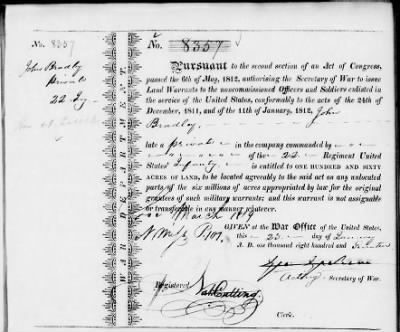 No. 8357
John Bradly
Private
22 Iny
WAR DEPARTMENT.
No. 8357
Pursuant to the second section of an Act of Congress,
passed the 6th of May, 1812, authorising the Secretary of War to issue
Land Warrants to the noncommissioned Officers and Soldiers enlisted in
the service of the United States, conformably to the acts of the 24th of
December, 1811, and of the 11th of January, 1812, John
Bradly
late a private in the company commanded by
of the 22 Regiment United
States' Infantry is entitled to ONE HUNDRED AND SIXTY
ACRES OF LAND, to be located agreeably to the said act on any unlocated
parts of the six millions of acres appropriated by law for the original
grantees of such military warrants; and this warrant is not assignable
or transferable in any manner whatever.
March 1819
GIVEN at the War Office of the United States,
this 23 day of
A. D. one thousand eight hundred and
Secretary of War.
Registered
Nath Cutting.
Clerk.